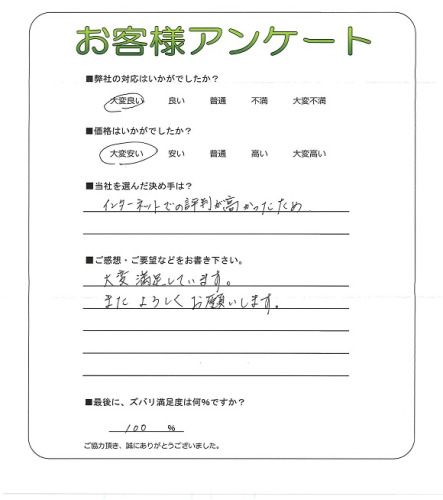 お客様アンケート
■弊社の対応はいかがでしたか？
大変良い 良い 普通 不満 大変不満
■価格はいかがでしたか？
大変安い 安い 普通 高い 大変高い
■当社を選んだ決め手は？
インターネットでの評判が高かったため
■ご感想・ご要望などをお書き下さい。
大変満足しています。
また よろしく お願いします。
■最後に、ズバリ満足度は何%ですか？
100 %
ご協力頂き、誠にありがとうございました。